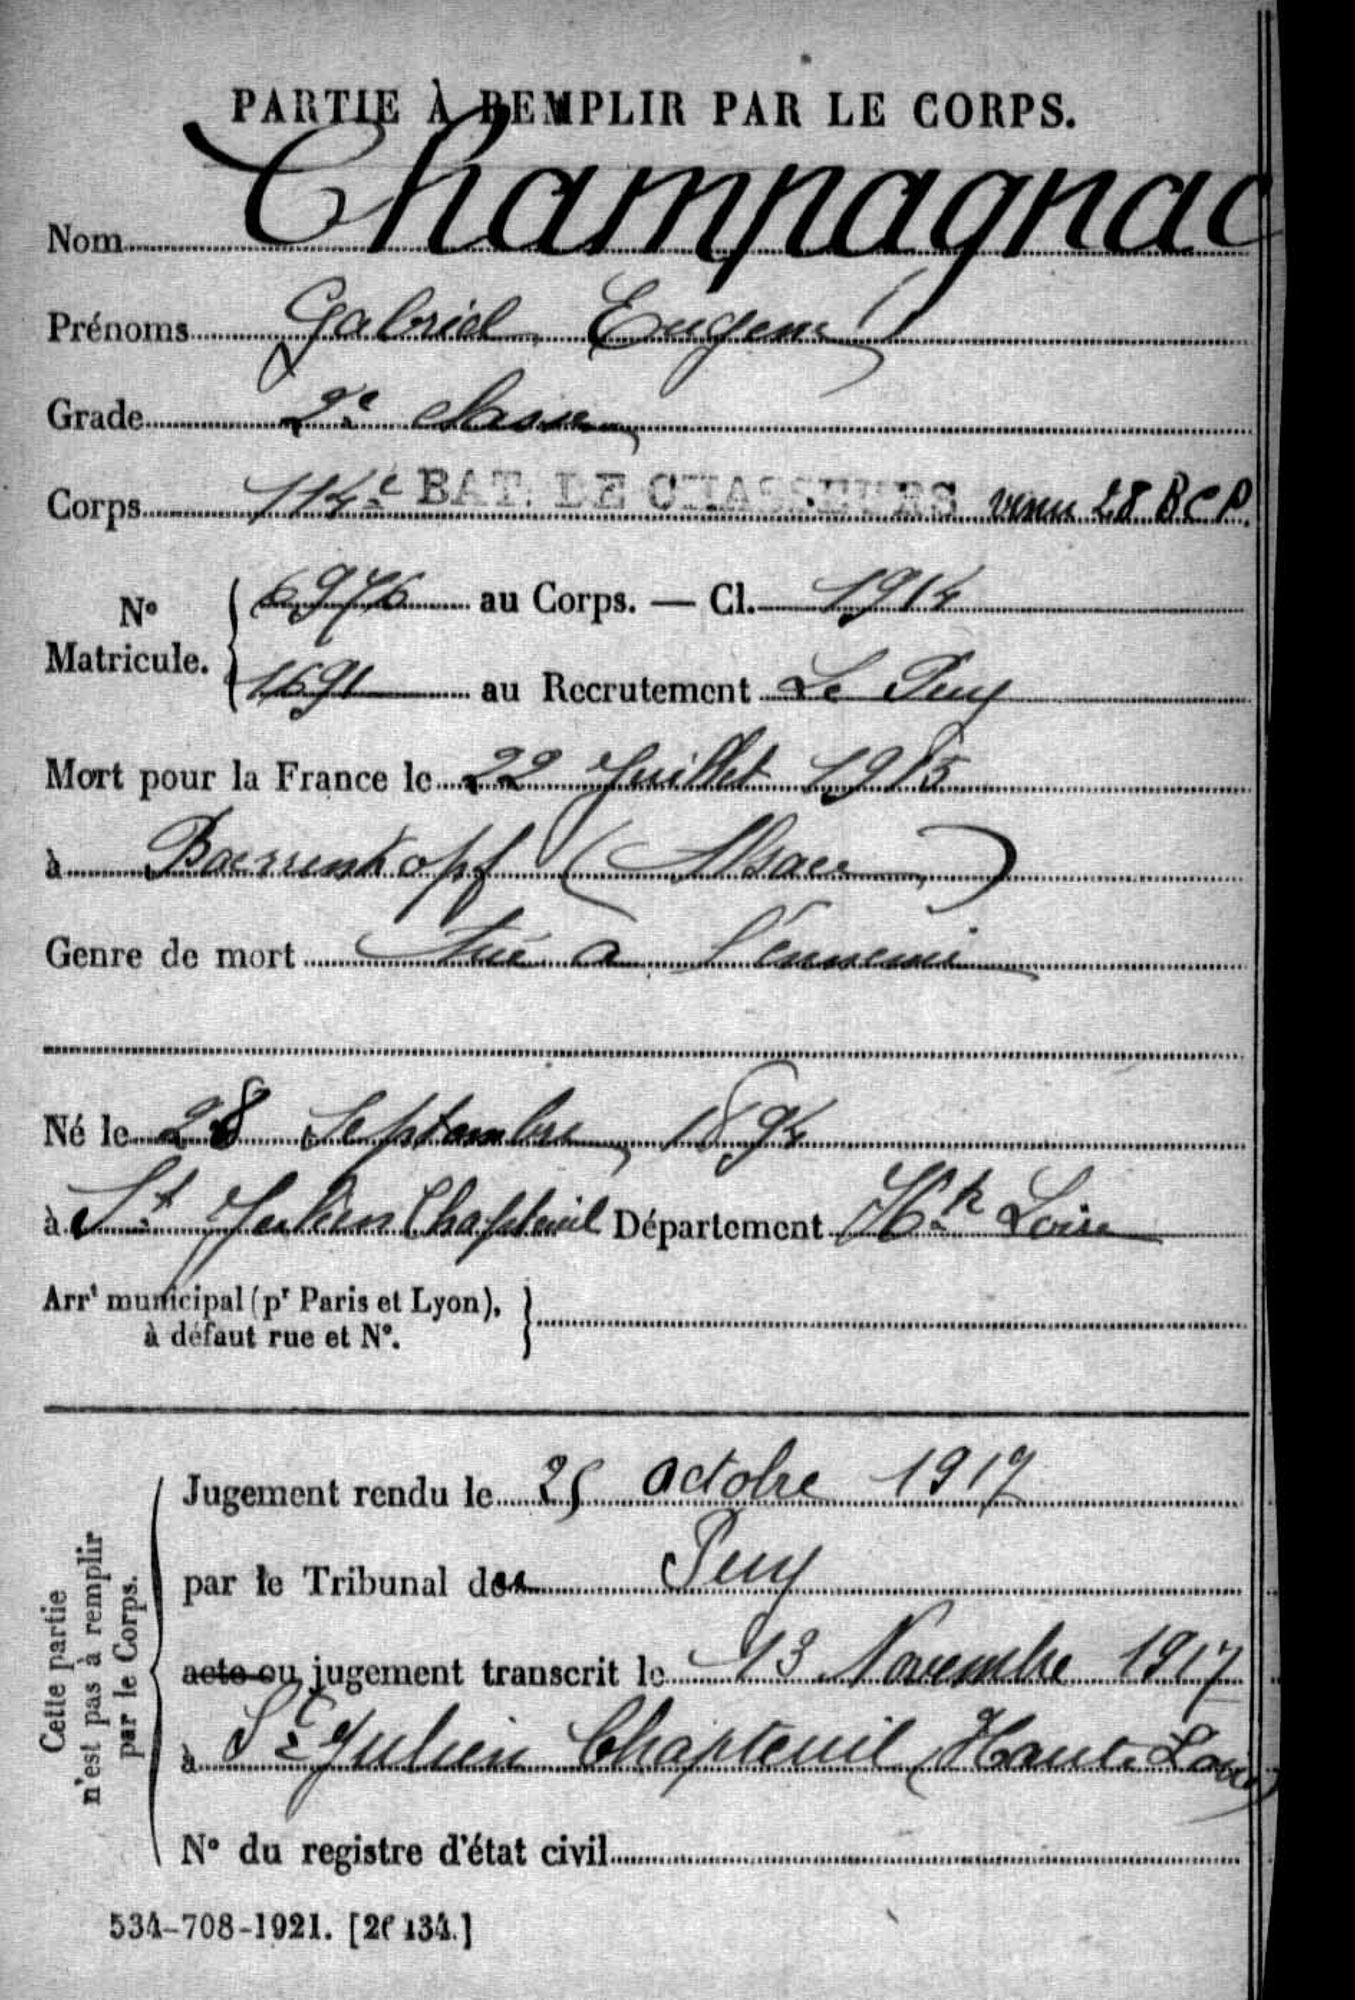 PARTIE À REMPLIR PAR LE CORPS.
Nom Champagnac
Prénoms Gabriel Eugène
Grade 2e classe
Corps 114e BAT. DE CHASSEURS venu 28 BCP.
N° Matricule. { 6976 au Corps. — Cl. 1914
1691 au Recrutement Le Puy
Mort pour la France le 22 Juillet 1915
à Baerrenkopf (Alsace)
Genre de mort Tué à l'ennemi
Né le 28 Septembre 1894
à St Julien Chapteuil Département Hte Loire
Arrt municipal (pr Paris et Lyon), à défaut rue et N°. }
Cette partie n'est pas à remplir par le Corps.
Jugement rendu le 25 octobre 1917
par le Tribunal du Puy
acte ou jugement transcrit le 13 Novembre 1917
à St Julien Chapteuil (Haute Loire)
N° du registre d'état civil
534-708-1921. [26134.]